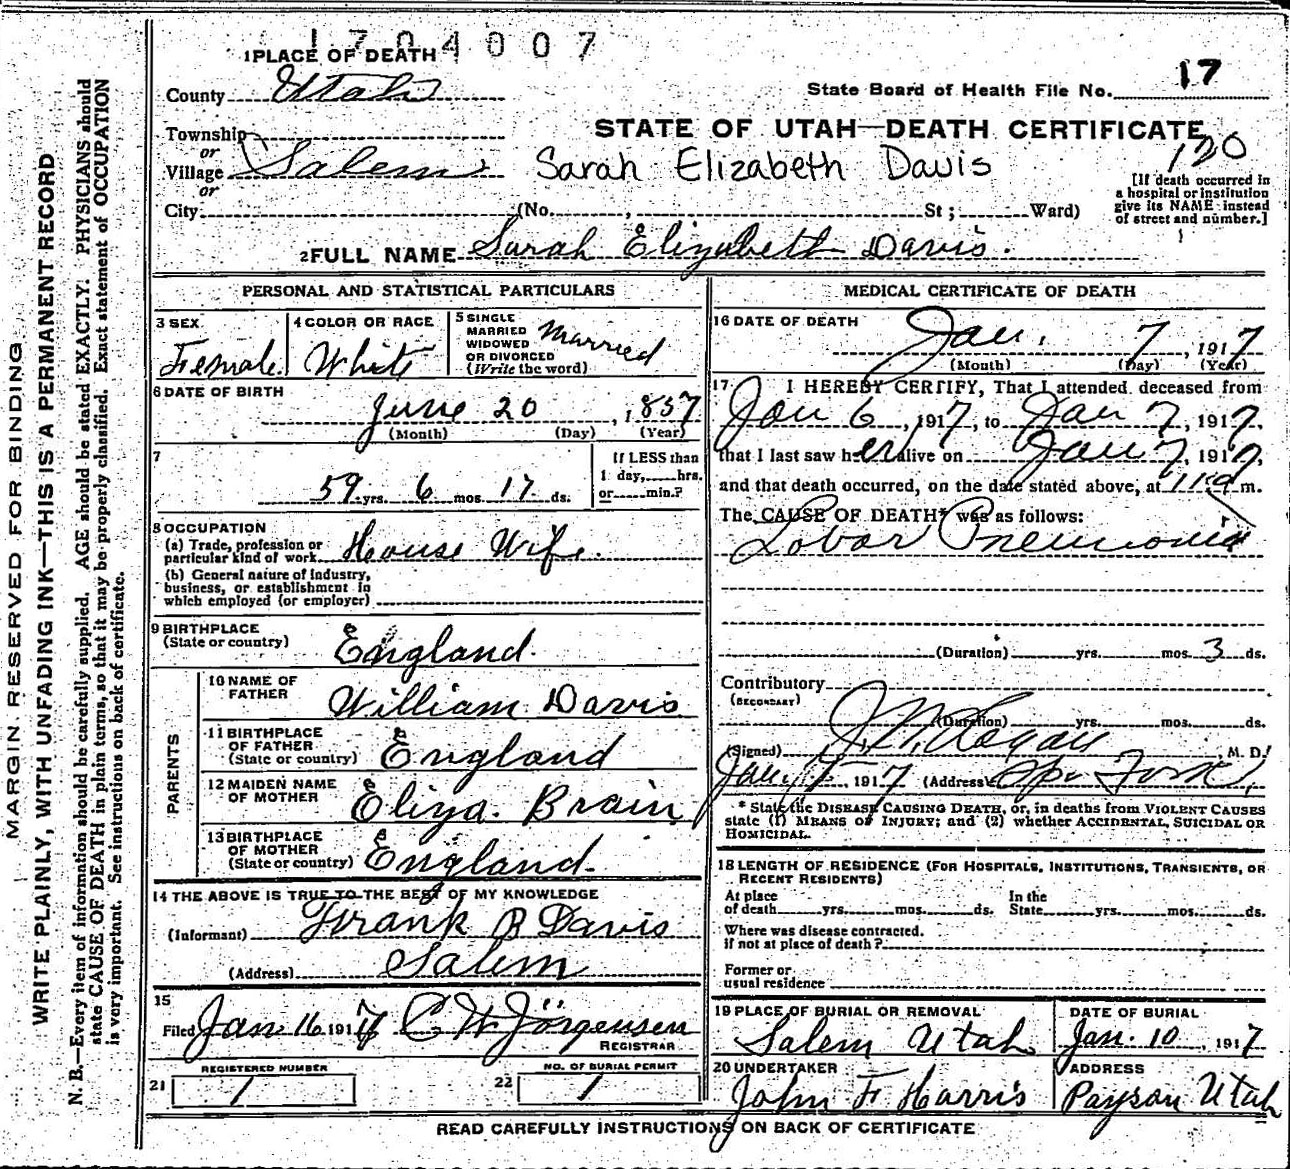 1704007
1 PLACE OF DEATH
County Utah
State Board of Health File No. 17
Township
or
Village Salem
or
City (No. , St ; Ward)
STATE OF UTAH—DEATH CERTIFICATE
120
Sarah Elizabeth Davis
[If death occurred in
a hospital or institution
give its NAME instead
of street and number.]
2 FULL NAME Sarah Elizabeth Davis.
PERSONAL AND STATISTICAL PARTICULARS
3 SEX
Female
4 COLOR OR RACE
White
5 SINGLE
MARRIED
WIDOWED
OR DIVORCED
(Write the word)
Married
6 DATE OF BIRTH
June 20 , 1857
(Month) (Day) (Year)
7
59 yrs. 6 mos. 17 ds.
If LESS than
1 day, hrs.
or min.?
8 OCCUPATION
(a) Trade, profession or
particular kind of work House Wife.
(b) General nature of industry,
business, or establishment in
which employed (or employer)
9 BIRTHPLACE
(State or country) England.
PARENTS
10 NAME OF
FATHER William Davis
11 BIRTHPLACE
OF FATHER
(State or country) England
12 MAIDEN NAME
OF MOTHER Eliza. Brain
13 BIRTHPLACE
OF MOTHER
(State or country) England.
14 THE ABOVE IS TRUE TO THE BEST OF MY KNOWLEDGE
(Informant) Frank R Davis
(Address) Salem
15
Filed Jan 16 1917 C W Jörgensen
REGISTRAR
REGISTERED NUMBER
21 1
NO. OF BURIAL PERMIT
22 1
MEDICAL CERTIFICATE OF DEATH
16 DATE OF DEATH
Jan. 7 , 1917
(Month) (Day) (Year)
17 I HEREBY CERTIFY, That I attended deceased from
Jan 6 , 1917, to Jan 7, 1917,
that I last saw her alive on Jan 7, 1917,
and that death occurred, on the date stated above, at m.
The CAUSE OF DEATH* was as follows:
Lobar Pneumonia
(Duration) yrs. mos. 3 ds.
Contributory
(SECONDARY)
(Duration) yrs. mos. ds.
(Signed) , M. D.
Jan , 1917 (Address) Sp. Fork
* State the DISEASE CAUSING DEATH, or, in deaths from VIOLENT CAUSES
state (1) MEANS OF INJURY; and (2) whether ACCIDENTAL, SUICIDAL OR
HOMICIDAL.
18 LENGTH OF RESIDENCE (FOR HOSPITALS, INSTITUTIONS, TRANSIENTS, OR
RECENT RESIDENTS)
At place
of death yrs. mos. ds.
In the
State yrs. mos. ds.
Where was disease contracted.
if not at place of death?
Former or
usual residence
19 PLACE OF BURIAL OR REMOVAL
Salem Utah
DATE OF BURIAL
Jan. 10 , 1917
20 UNDERTAKER
John F Harris
ADDRESS
Payson Utah
READ CAREFULLY INSTRUCTIONS ON BACK OF CERTIFICATE
MARGIN RESERVED FOR BINDING
WRITE PLAINLY, WITH UNFADING INK—THIS IS A PERMANENT RECORD
N. B.—Every item of information should be carefully supplied. AGE should be stated EXACTLY. PHYSICIANS should
state CAUSE OF DEATH in plain terms, so that it may be properly classified. Exact statement of OCCUPATION
is very important. See instructions on back of certificate.